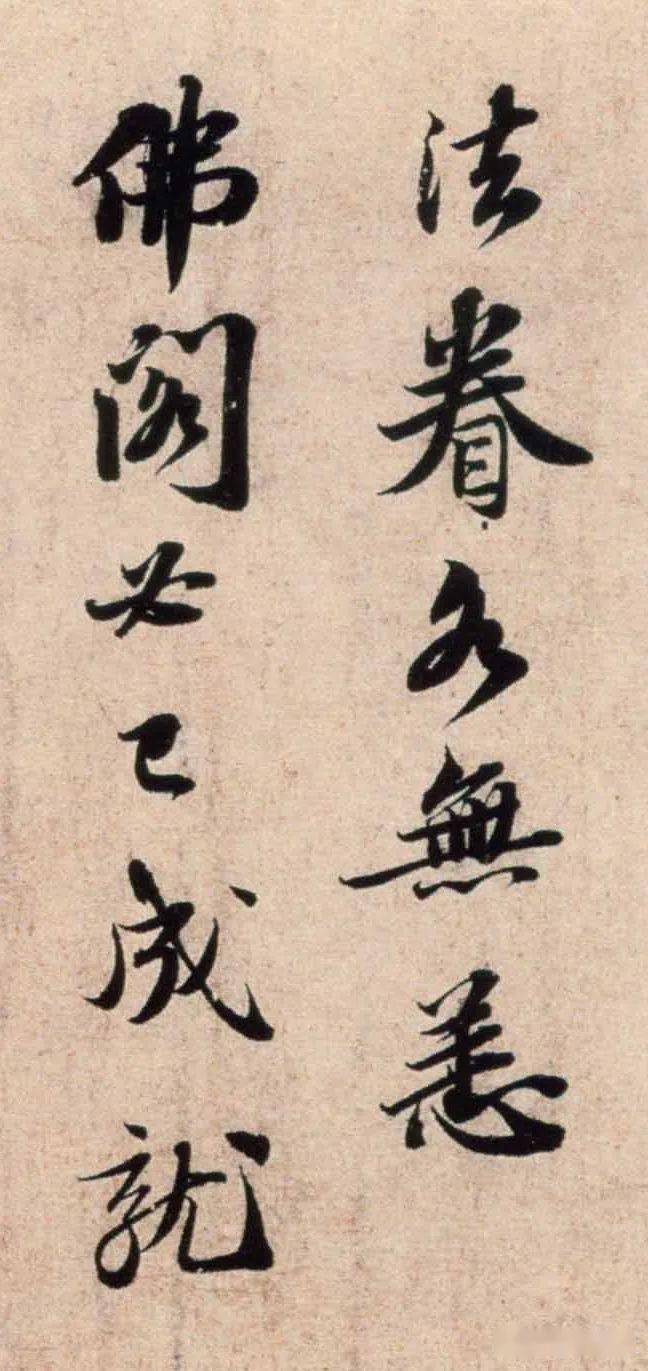 法眷各無恙
佛閣必已成就